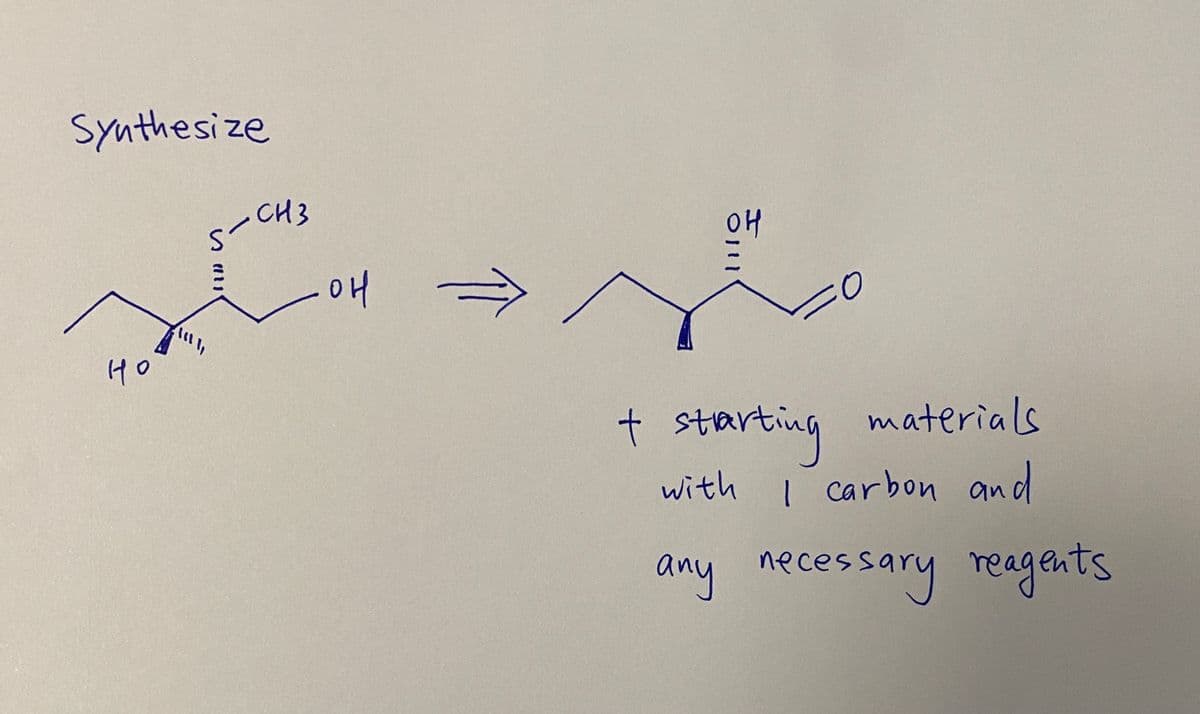 Synthesize
CH3
S
OH
HO
OH
O
+ starting materials
with 1 carbon and
any necessary reagents